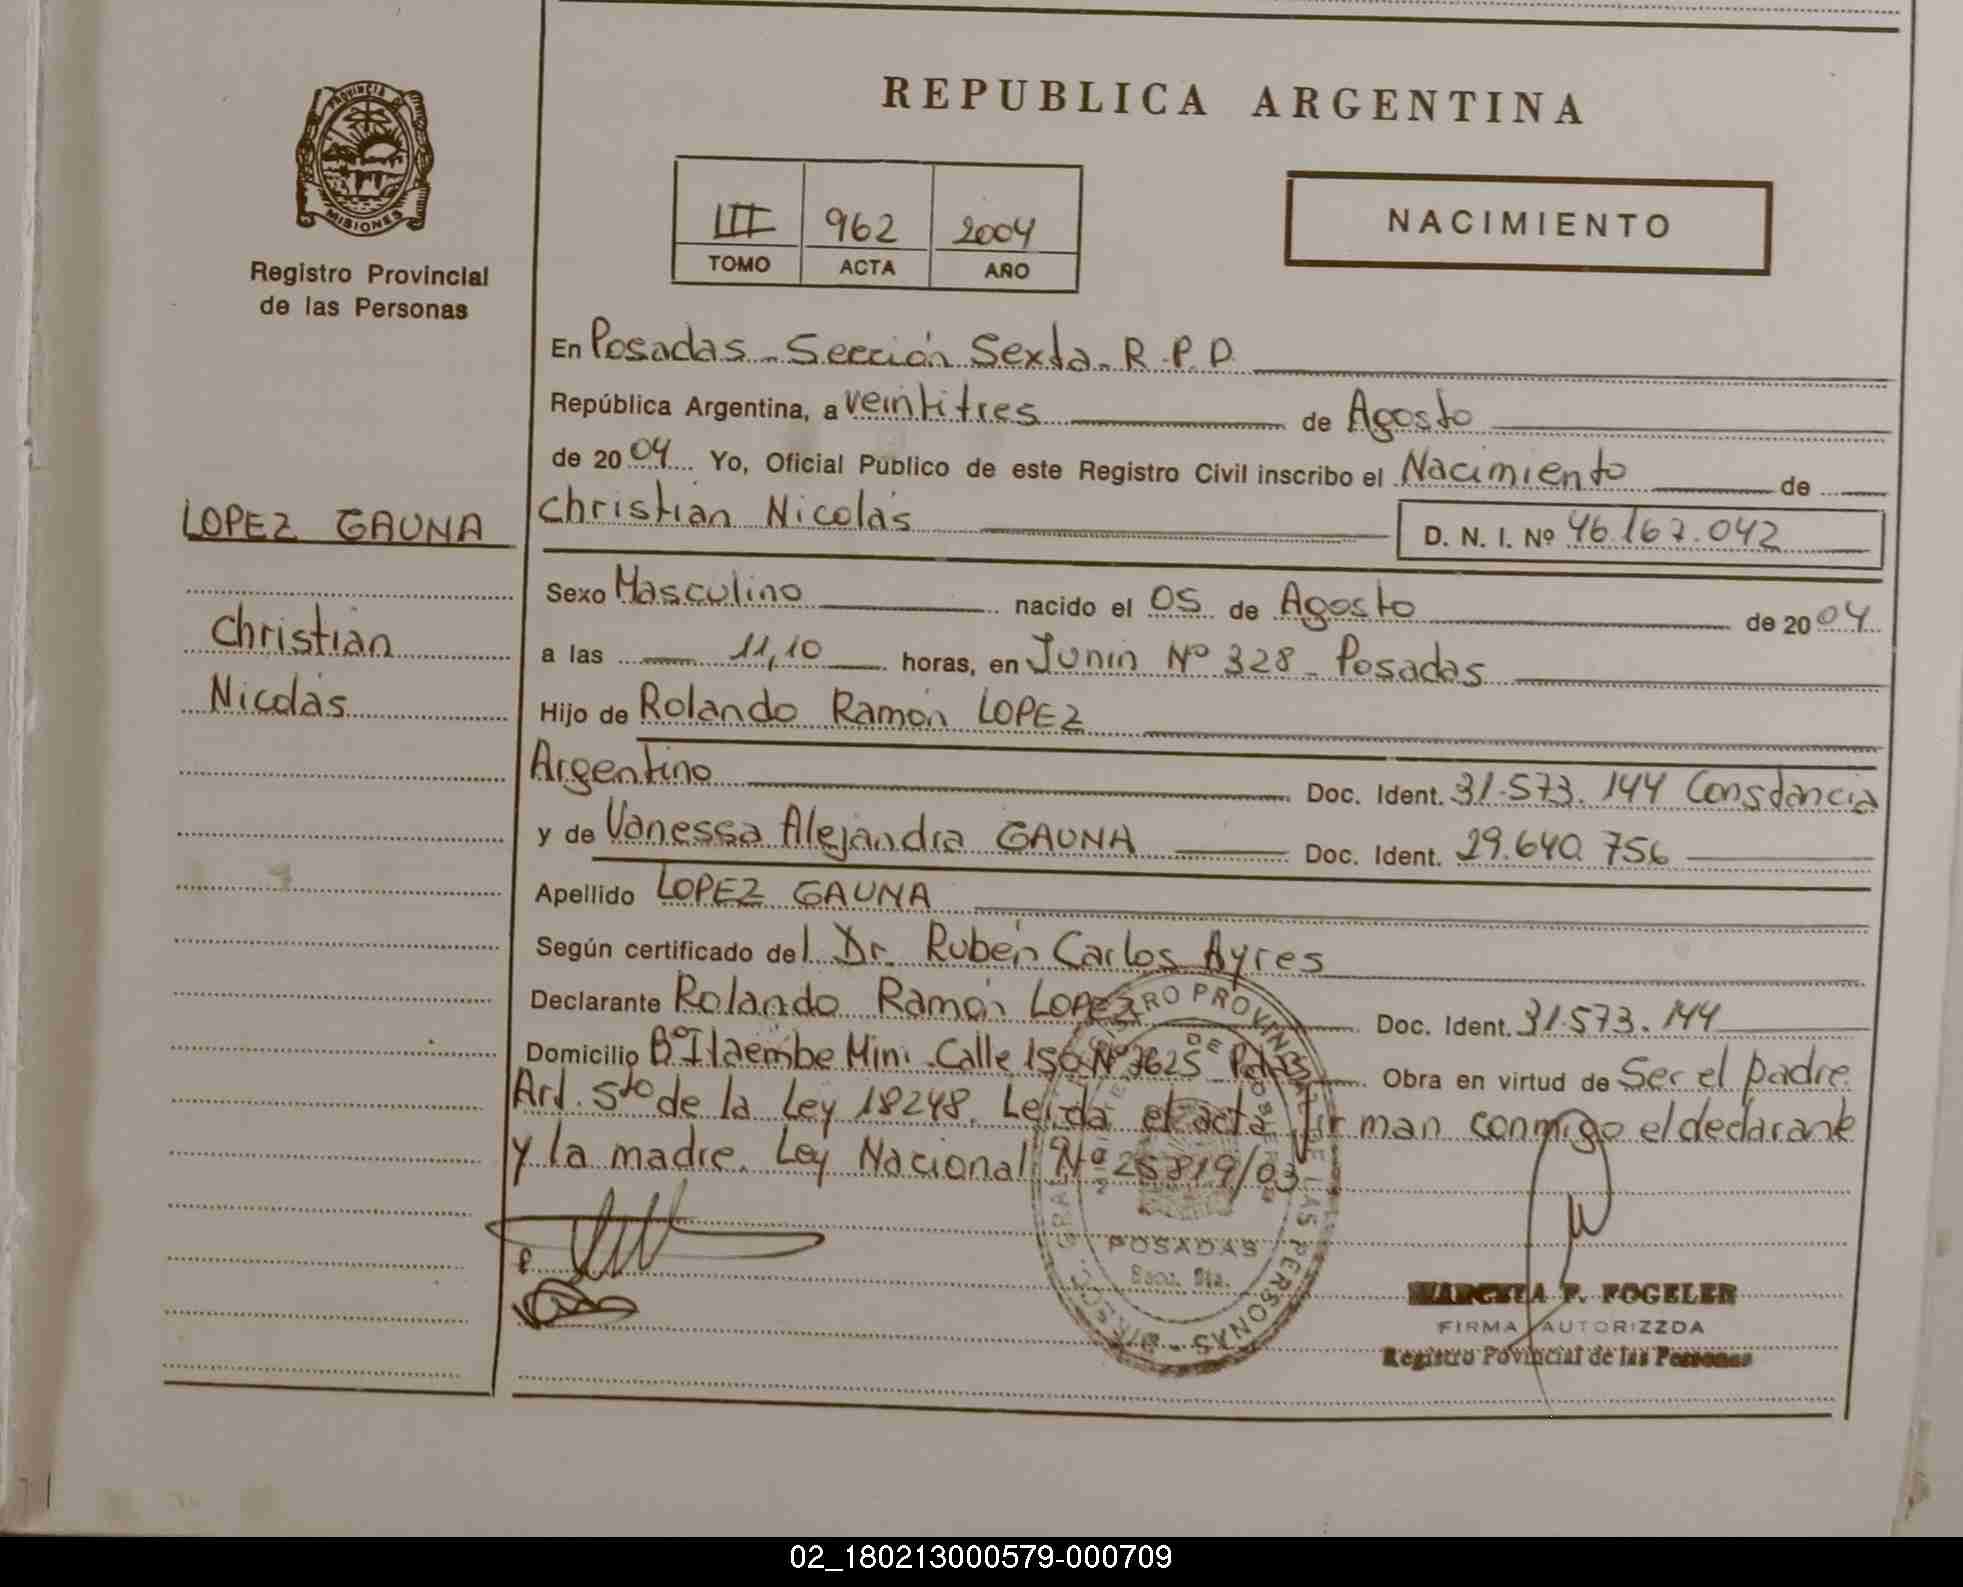 REPUBLICA ARGENTINA
PROVINCIA DE
MISIONES
Registro Provincial
de las Personas
III 962 2004
TOMO ACTA AÑO
NACIMIENTO
En Posadas - Sección Sexta - R.P.P.
República Argentina, a veintitres de Agosto
de 2004 Yo, Oficial Público de este Registro Civil inscribo el Nacimiento de
Christian Nicolás D. N. I. Nº 46.167.042
LOPEZ GAUNA
Christian
Nicolás
Sexo Masculino nacido el 05 de Agosto de 2004
a las 11,10 horas, en Junín Nº 328 - Posadas
Hijo de Rolando Ramón LOPEZ
Argentino Doc. Ident. 31.573.144 Constancia
y de Vanessa Alejandra GAUNA Doc. Ident. 29.640.756
Apellido LOPEZ GAUNA
Según certificado del Dr. Rubén Carlos Ayres
Declarante Rolando Ramón LOPEZ Doc. Ident. 31.573.144
Domicilio Bº Itaembe Mini - Calle 150 Nº 7625 Obra en virtud de Ser el padre
Art. 5to de la Ley 18248. Leída el acta firman conmigo el declarante
y la madre. Ley Nacional Nº 25819/03
REGISTRO PROVINCIAL DE LAS PERSONAS
POSADAS
Secc. 6ta.
MARCELA F. FOGELER
FIRMA AUTORIZZDA
Registro Povincial de las Personas
02_180213000579-000709